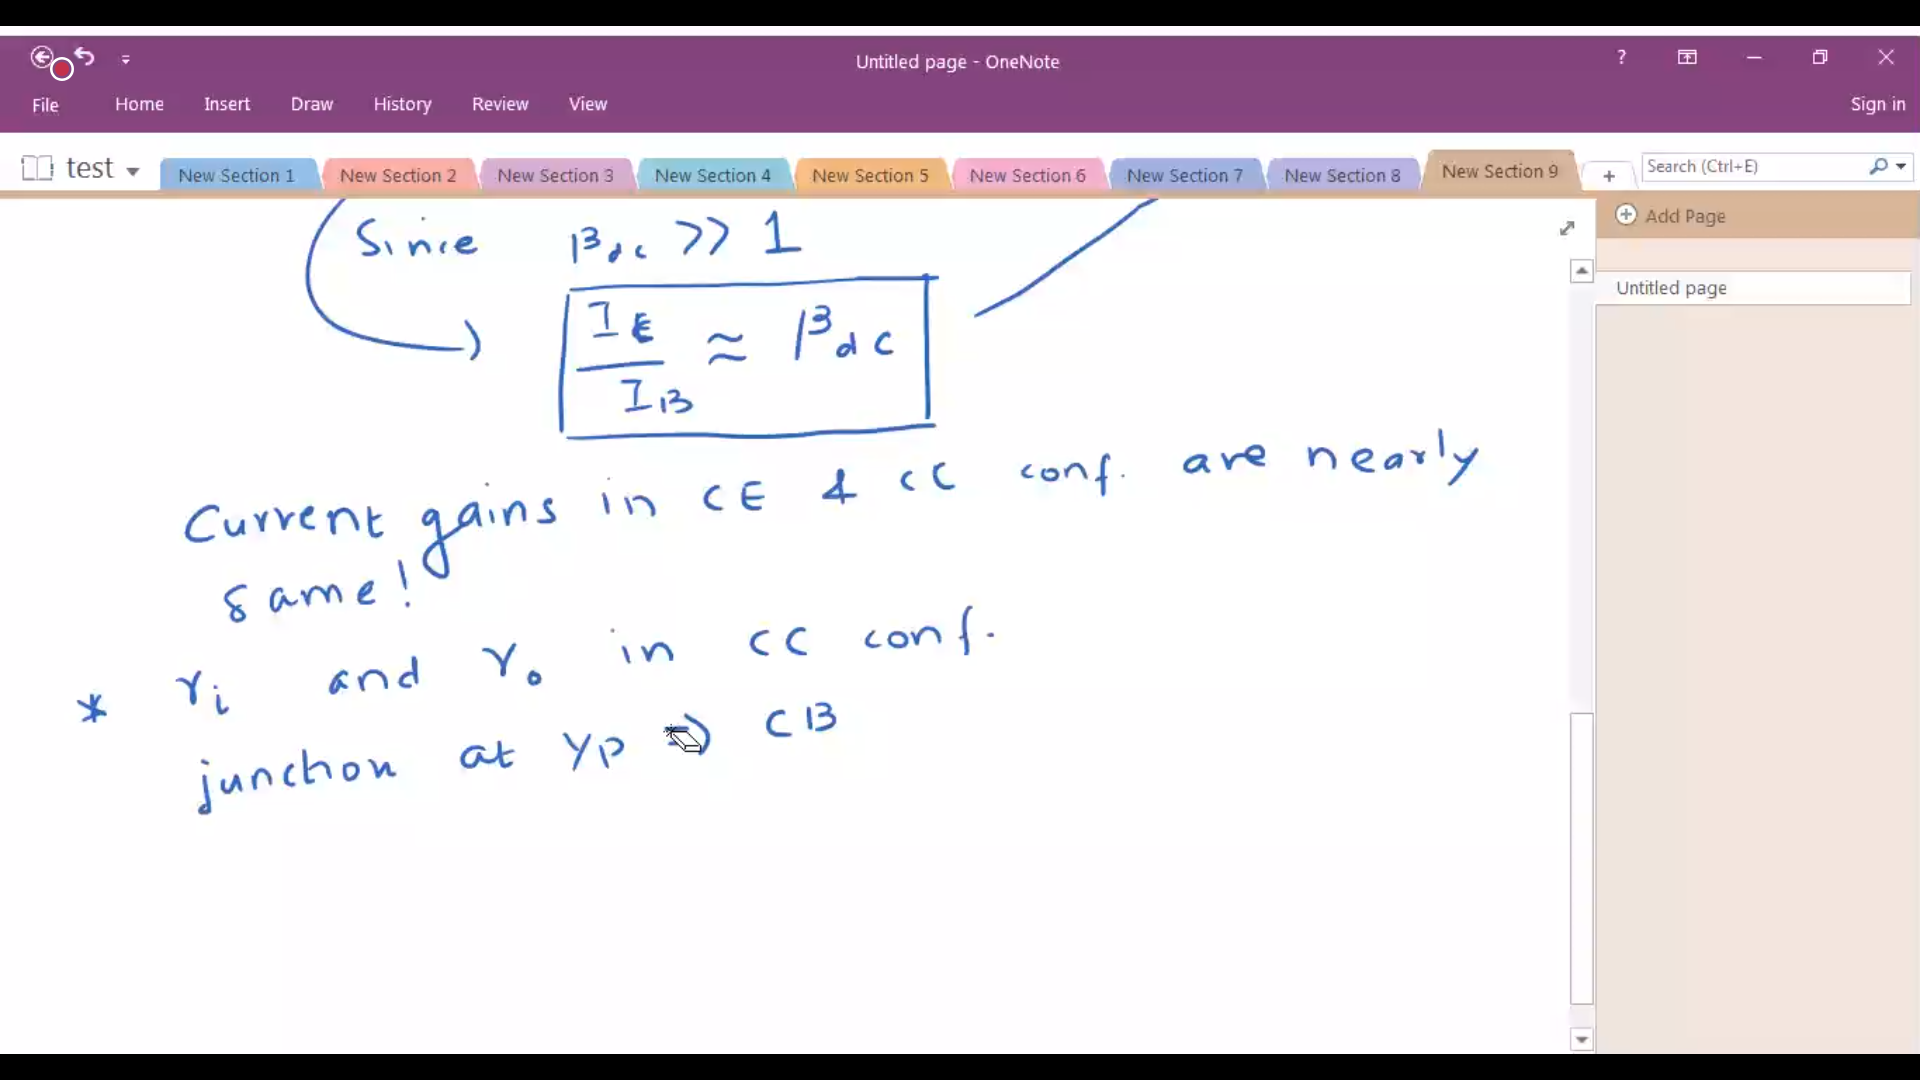 Untitled page - OneNote
?
File Home Insert Draw History Review View
Sign in
test
New Section 1 New Section 2 New Section 3 New Section 4 New Section 5 New Section 6 New Section 7 New Section 8 New Section 9 +
Search (Ctrl+E)
Add Page
Untitled page
Since βdc >> 1
IE/IB ≈ βdc
Current gains in CE & CC conf. are nearly
same!
* ri and ro in CC conf.
junction at yp ⇒ CB